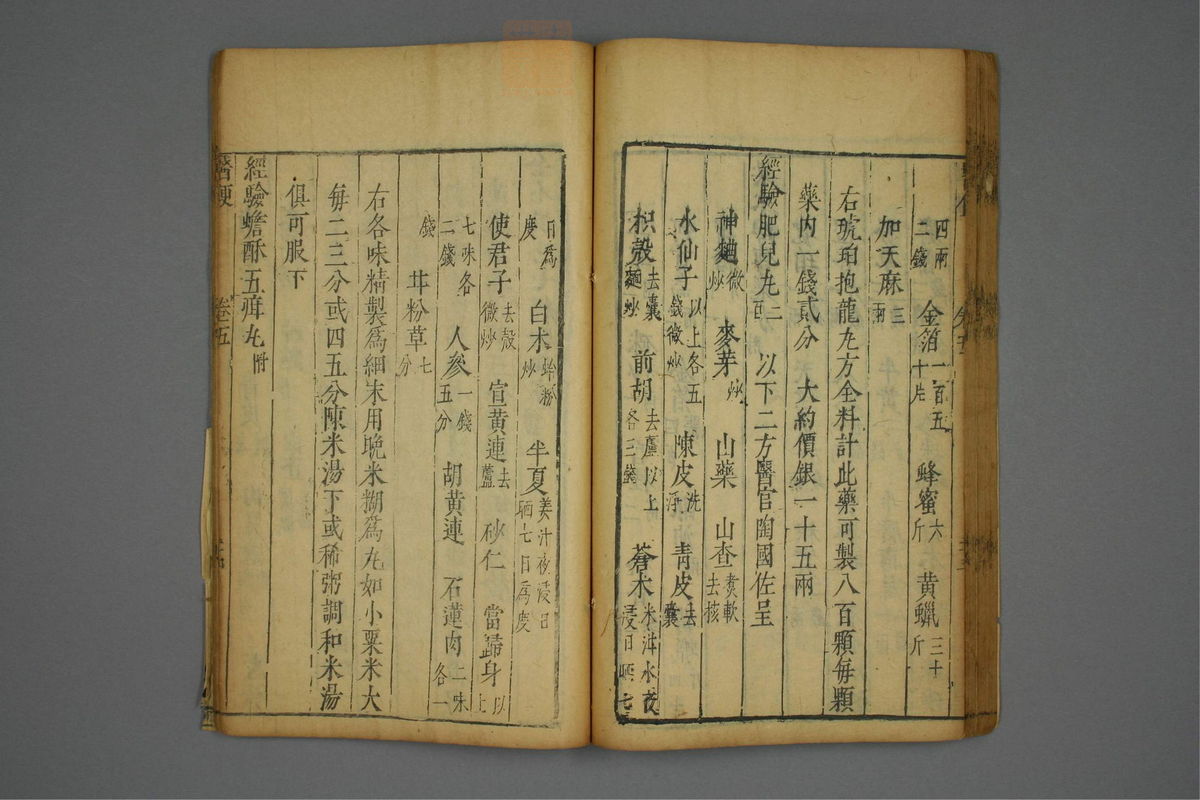 四兩二錢 金箔一百五十片 蜂蜜六斤 黃蠟三十斤
加天麻三兩
右琥珀抱龍丸方全料計此藥可製八百顆每顆
藥内一錢貳分 大約價銀一十五兩
經驗肥兒丸二 以下二方醫官陶國佐呈
神麯微炒 麥芽炒 山藥 山查煮軟去核
水仙子以上各五錢微炒 陳皮洗浮 青皮去囊
枳殼去囊麵炒 前胡去蘆以上各三錢 蒼朮米泔水夜浸日晒七
日為度 白朮蛤粉炒 半夏姜汁夜浸日晒七日為度
使君子去殼微炒 官黃連去蘆 砂仁 當歸身以上
七味各二錢 人參一錢五分 胡黃連 石蓮肉二味各一
錢 粉草七分
右各味精製為細末用晚米糊為丸如小粟米大
每二三分或四五分陳米湯下或稀粥調和米湯
俱可服下
經驗蟾酥五疳丸附
醫便 卷五